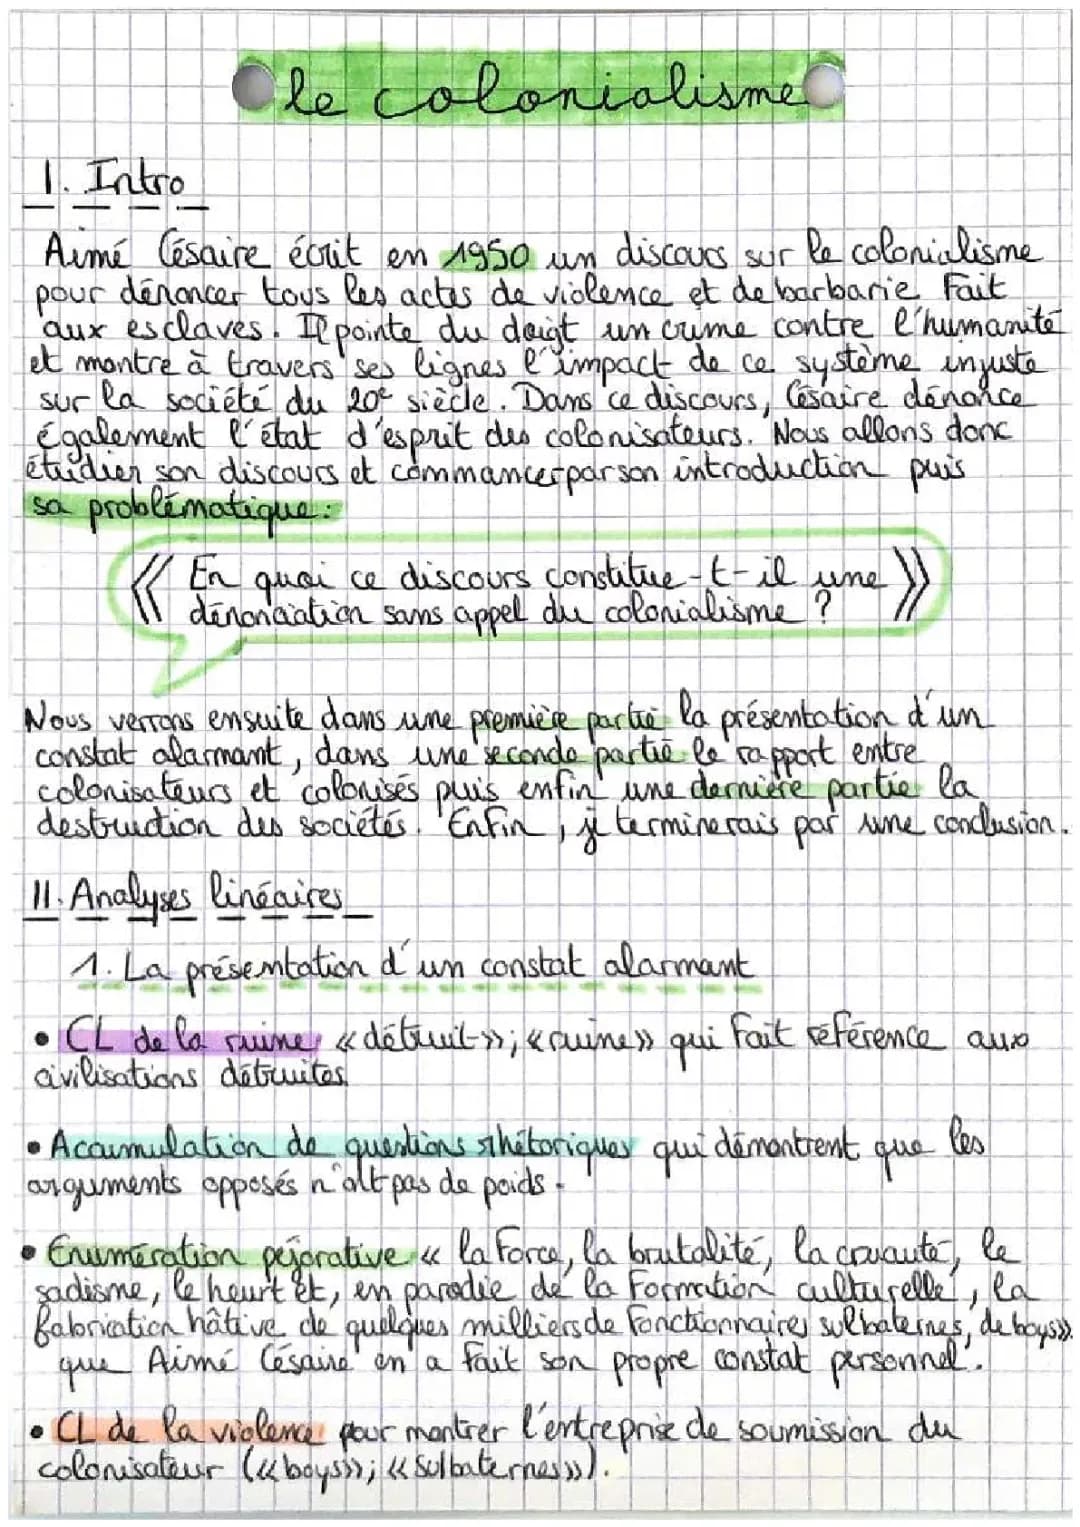 le colonialisme
I. Intro
Aimé Césaire écrit en 1950 un discours sur le colonialisme
pour dénoncer tous les actes de violence et de barbarie fait
aux esclaves. Il pointe du doigt un crime contre l'humanité
et montre à travers ses lignes l'impact de ce système injuste
sur la société du 20e siècle. Dans ce discours, Césaire dénonce
également l'état d'esprit des colonisateurs. Nous allons donc
étudier son discours et commancer par son introduction puis
sa problématique :
« En quoi ce discours constitue-t-il une »
dénonciation sans appel du colonialisme ?
Nous verrons ensuite dans une première partie la présentation d'un
constat alarmant, dans une seconde partie le rapport entre
colonisateurs et colonisés puis enfin une dernière partie la
destruction des sociétés. Enfin, je terminerais par une conclusion.
II. Analyses linéaires
1. La présentation d'un constat alarmant
• CL de la ruine « détruit » ; « ruine » qui fait référence aux
civilisations détruites
• Accumulation de questions rhétoriques qui démontrent que les
arguments opposés n'ont pas de poids.
• Enumération péjorative « la force, la brutalité, la cruauté, le
sadisme, le heurt et, en parodie de la formation culturelle, la
fabrication hâtive de quelques milliers de fonctionnaires sulbaternes, de boys »
que Aimé Césaire en a fait son propre constat personnel.
• CL de la violence pour montrer l'entreprise de soumission du
colonisateur (« boys » ; « sulbaternes »).